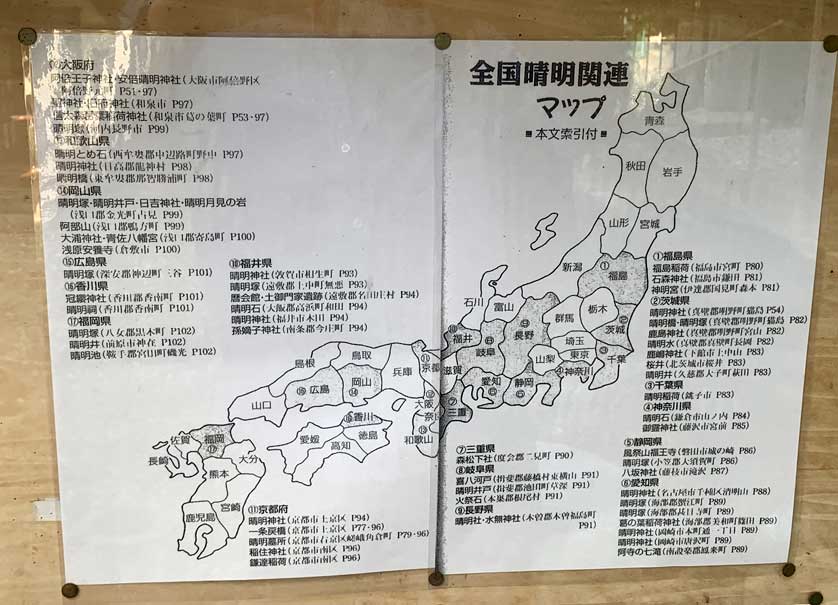 全国晴明関連
マップ
■本文索引付■
⑫大阪府
阿倍王子神社・安倍晴明神社(大阪市阿倍野区
阿倍野元町 P51・97)
(和泉市 P97)
信太森葛葉稲荷神社(和泉市葛の葉町 P53・97)
晴明塚(河内長野市 P99)
⑬和歌山県
晴明とめ石(西牟婁郡中辺路町野中 P97)
晴明神社(日高郡龍神村 P98)
晴明橋(東牟婁郡那智勝浦町 P98)
⑭岡山県
晴明塚・晴明井戸・日吉神社・晴明月見の岩
(浅口郡金光町占見 P99)
阿部山(浅口郡鴨方町 P99)
大浦神社・青佐八幡宮(浅口郡寄島町 P100)
浅原安養寺(倉敷市 P100)
⑮広島県
晴明塚(深安郡神辺町三谷 P101)
⑯香川県
冠纓神社(香川郡香南町 P101)
晴明祠(香川郡香南町 P101)
⑰福岡県
晴明塚(八女郡黒木町 P102)
晴明井(前原市神在 P102)
晴明池(鞍手郡宮田町磯光 P102)
⑩福井県
晴明神社(敦賀市相生町 P93)
晴明塚(遠敷郡上中町無悪 P93)
暦会館・土御門家遺跡(遠敷郡名田庄村 P94)
晴明石(大飯郡高浜町和田 P94)
晴明神社(福井市木田 P94)
孫嫡子神社(南条郡今庄町 P94)
⑪京都府
晴明神社(京都市上京区 P94)
一条戻橋(京都市上京区 P77・96)
晴明墓所(京都市右京区嵯峨角倉町 P79・96)
稲住神社(京都市南区 P96)
鎌達稲荷(京都市南区 P96)
①福島県
福島稲荷(福島市宮町 P80)
石森神社(福島市鎌田 P81)
神明宮(伊達郡国見町森木 P81)
②茨城県
晴明神社(真壁郡明野町猫島 P54)
晴明橋・晴明塚(真壁郡明野町猫島 P82)
鹿島神社(真壁郡明野町宮山 P82)
晴明水(真壁郡真壁町長岡 P82)
鹿嶋神社(下館市上中山 P83)
桜井(北茨城市桜井 P83)
晴明井(久慈郡大子町荻田 P83)
③千葉県
晴明稲荷(銚子市 P83)
④神奈川県
晴明石(鎌倉市山ノ内 P84)
御霊神社(藤沢市宮前 P85)
⑤静岡県
風祭山福王寺(磐田市城の崎 P86)
晴明塚(小笠郡大須賀町 P86)
八坂神社(藤枝市滝沢 P87)
⑥愛知県
晴明神社(名古屋市千種区清明山 P88)
晴明塚(海部郡蟹江町 P89)
晴明塚(海部郡甚目寺町 P89)
葛の葉稲荷神社(海部郡美和町篠田 P89)
晴明神社(岡崎市本町通一丁目 P89)
晴明神社(岡崎市唐沢町 P89)
阿寺の七滝(南設楽郡鳳来町 P89)
⑦三重県
森松下社(度会郡二見町 P90)
⑧岐阜県
喜八河戸(揖斐郡藤橋村東横山 P91)
晴明井戸(揖斐郡池田町草深 P91)
火祭石(本巣郡根尾村 P91)
⑨長野県
晴明社・水無神社(木曽郡木曽福島町
P91)
青森
秋田
岩手
山形
宮城
新潟
①
福島
石川
富山
群馬
栃木
②
茨城
福井
岐阜
長野
埼玉
滋賀
山梨
東京
千葉
④神奈川
愛知
静岡
鳥取
島根
兵庫
⑪
京都
岡山
⑭
⑮
広島
山口
大阪
奈良
⑦
三重
⑬
和歌山
⑯香川
愛媛
徳島
高知
佐賀
福岡
⑰
大分
長崎
熊本
宮崎
鹿児島